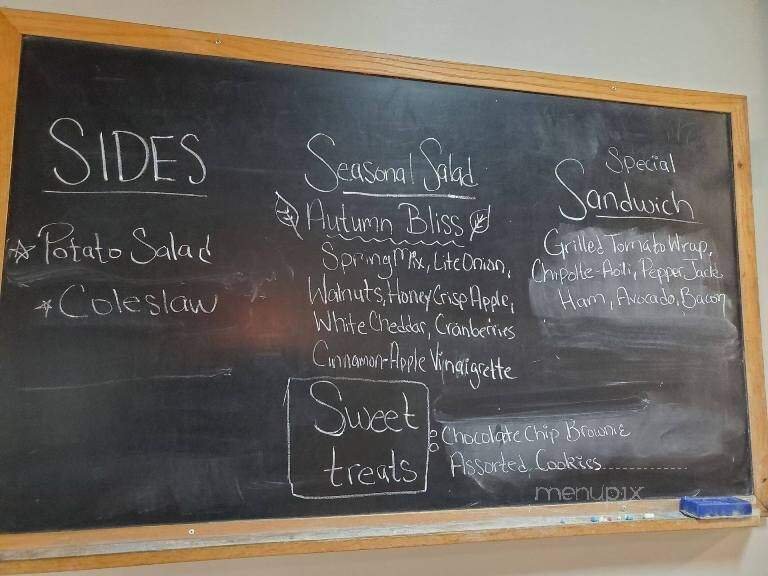 SIDES
Potato Salad
Coleslaw
Seasonal Salad
Autumn Bliss
Spring Mix, Lite Onion,
Walnuts, Honey Crisp Apple,
White Cheddar, Cranberries
Cinnamon-Apple Vinaigrette
Special
Sandwich
Grilled Tomato Wrap,
Chipolte-Aoli, Pepper Jack
Ham, Avocado, Bacon
Sweet
treats
Chocolate Chip Brownie
Assorted Cookies
menupix